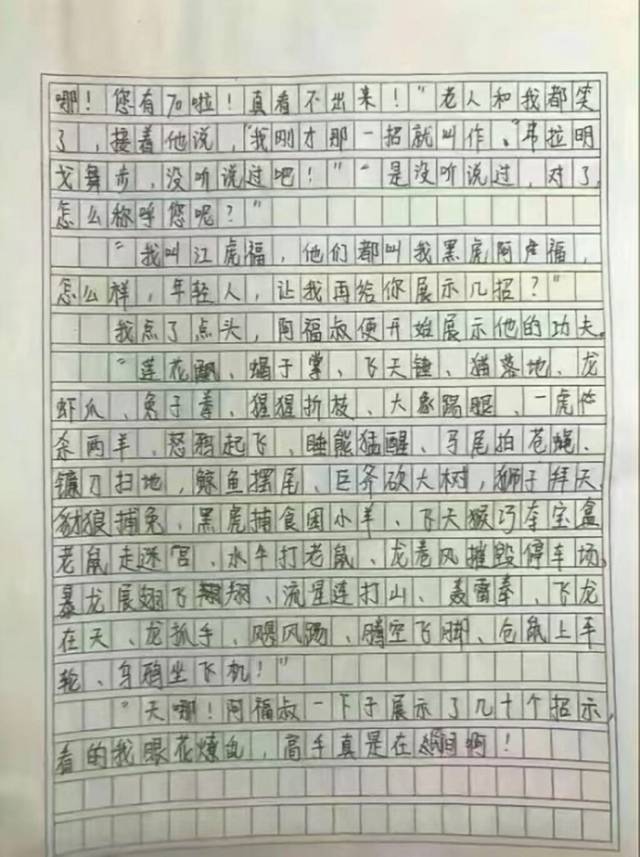 哪！您有70啦！真看不出来！"老人和我都笑
了，接着他说，"我刚才那一招就叫作、"弗拉明
戈舞步，没听说过吧！""是没听说过，对了，
怎么称呼您呢？"
"我叫江虎福，他们都叫我黑虎阿福，
怎么样，年轻人，让我再给你展示几招？"
我点了点头，阿福叔便开始展示他的功夫。
"莲花飘、蝎子掌、飞天锤、猫落地、龙
虾爪、兔子拳、猩猩折枝、大象踢腿、一虎
杀两羊、怒鸦起飞、睡熊猛醒、马尾拍苍蝇、
镰刀扫地，鲸鱼摆尾、巨斧砍大树，狮子拜天
豺狼捕兔、黑虎捕食困小羊、飞天猴巧夺宝盒
老鼠走迷宫、水牛打老鼠、龙卷风摧毁停车场，
暴龙展翅飞翔、流星连打山、轰雷拳、飞龙
在天、龙抓手、飓风踢、腾空飞脚、仓鼠上车
轮、乌鸦坐飞机！"
"天哪！阿福叔一下子展示了几十个招示，
看的我眼花燎乱，高手真是在民间啊！